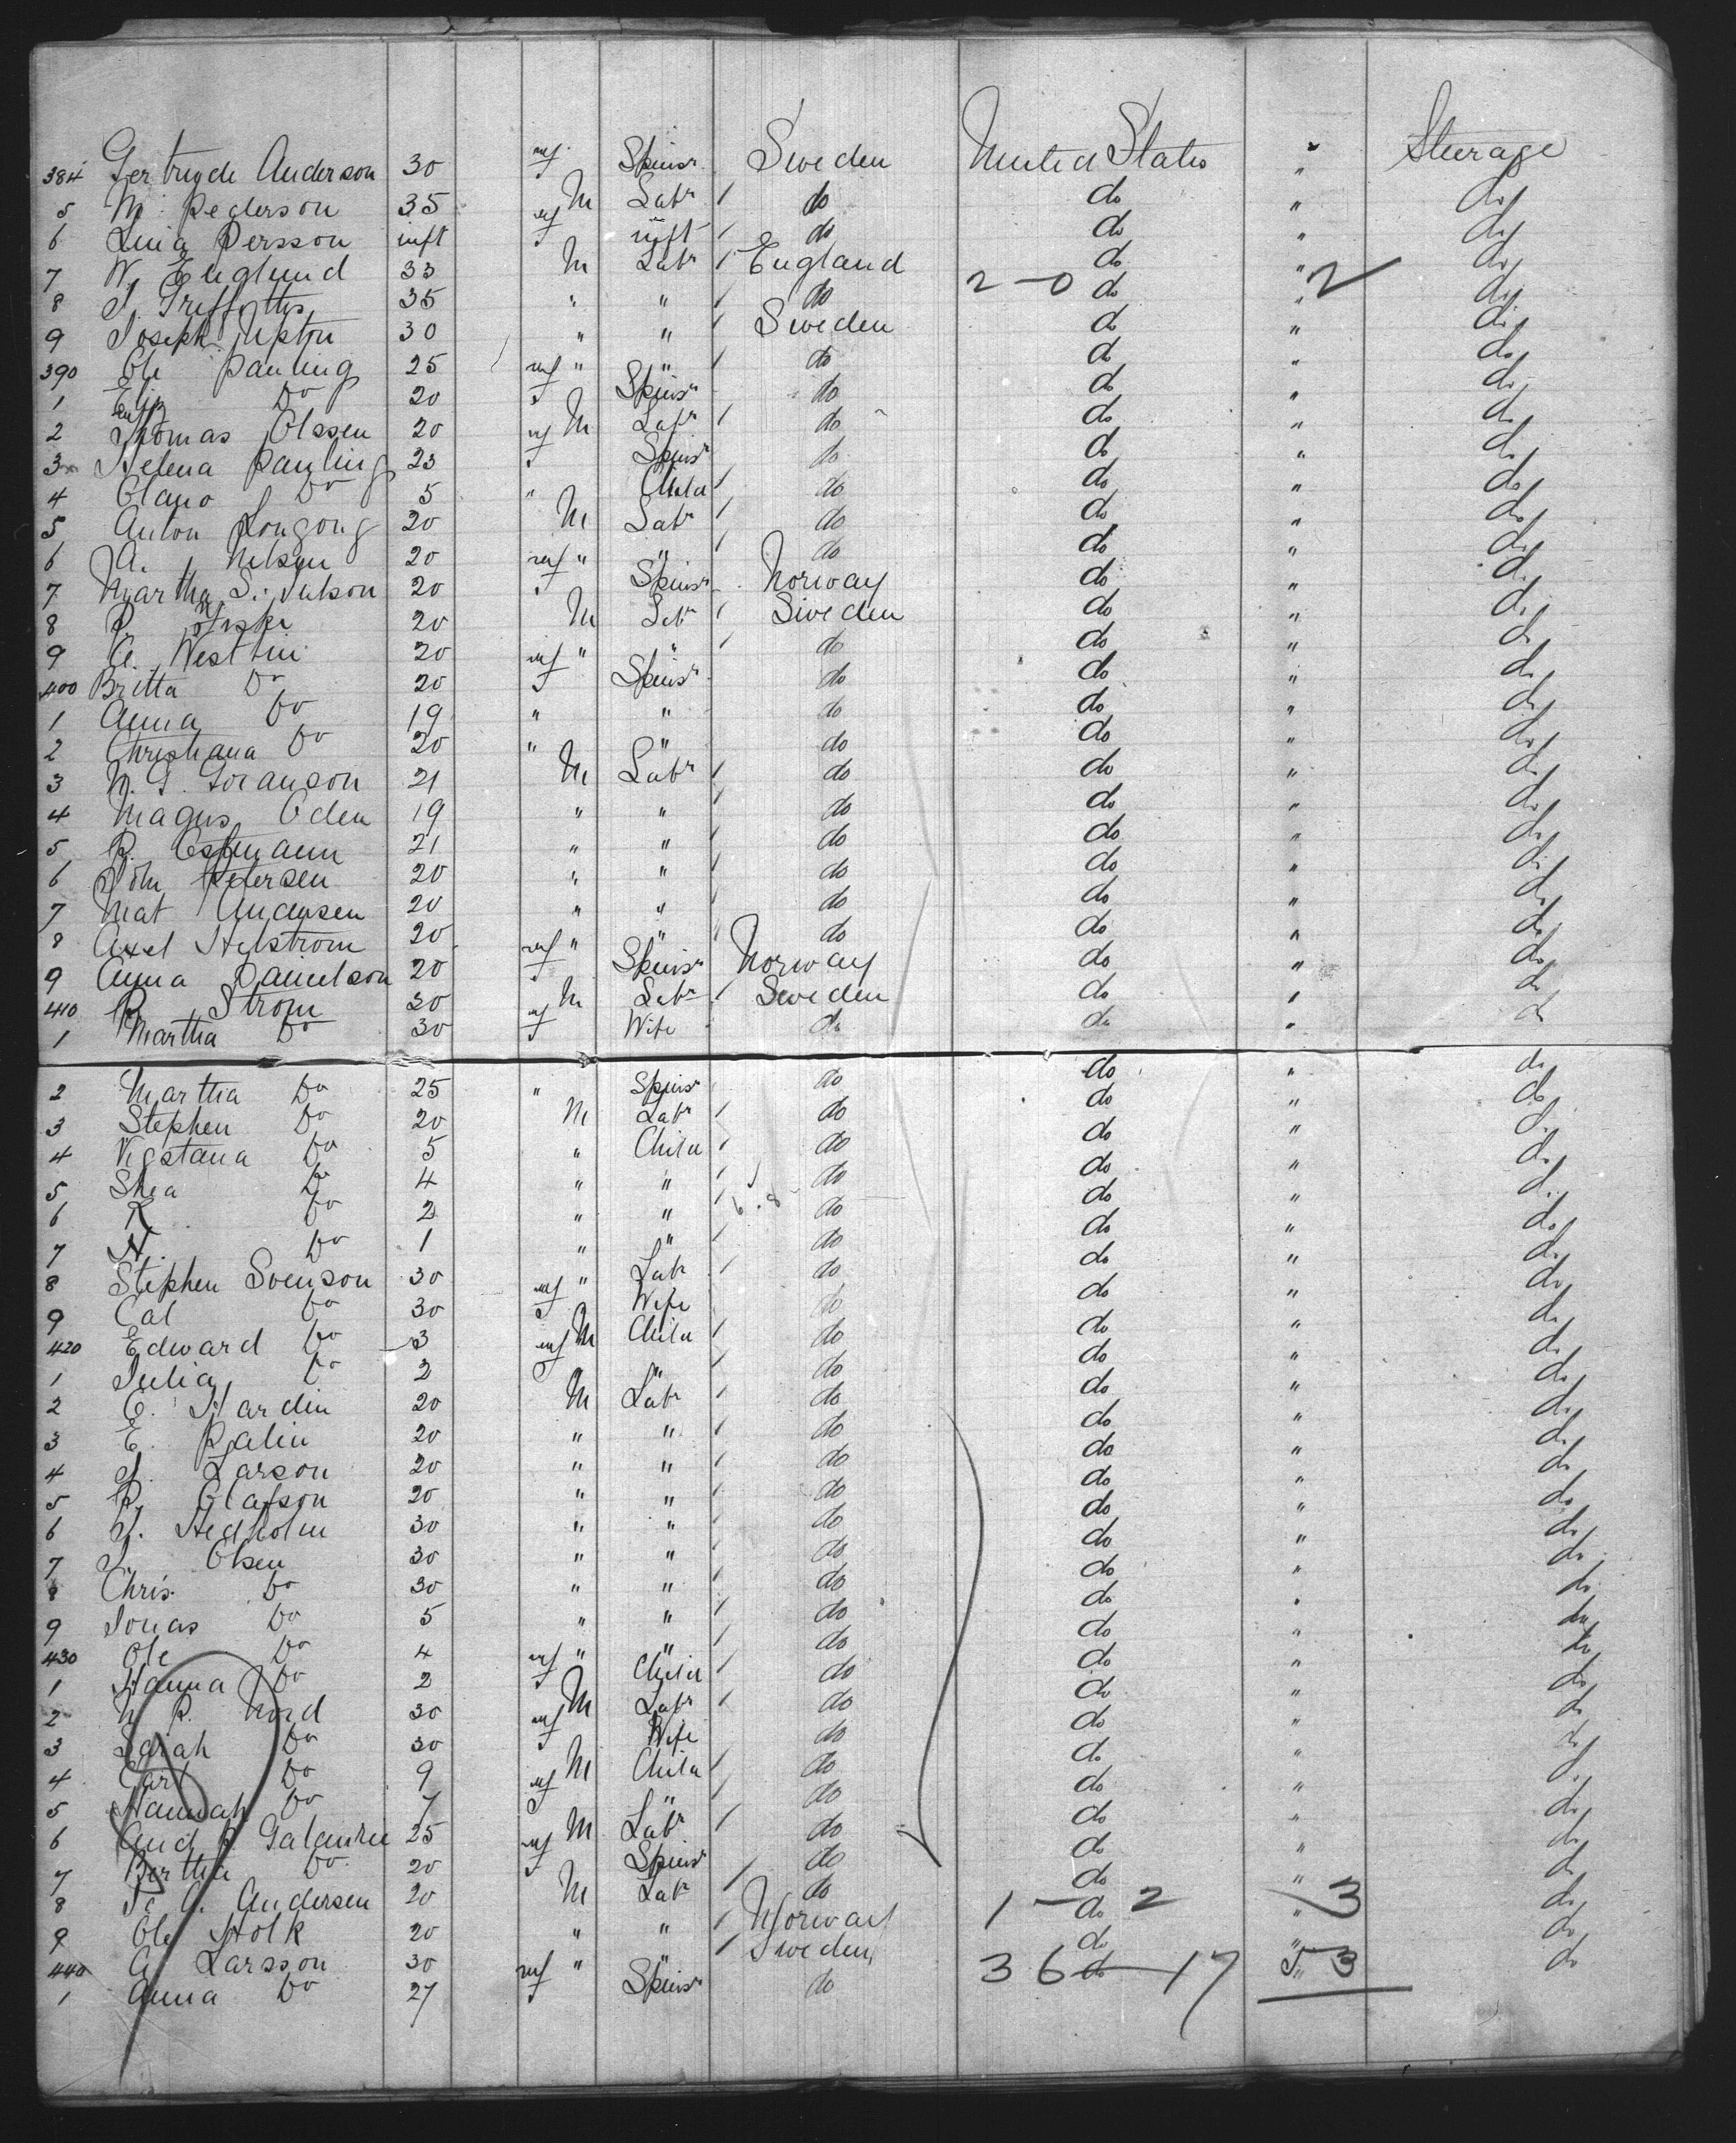 384 Gertrude Anderson 30 mf Spinsr Sweden United States " Steerage
5 M. Pederson 35 M Labr / do do " do
6 Lina Persson inft mf inft / do do " do
7 W. Englund 33 M Labr / England do " do
8 J. Griffiths 35 " " / do 2-0 do " 2 do
9 Joseph Upton 30 " " / Sweden do " do
390 Ole Pauling 25 " " / do do " do
1 Eliz Do 20 mf Spinsr do do " do
2 Thomas Olssen 20 M Labr / do do " do
3 Helena Pauling 23 mf Spinsr do do " do
4 Do 5 " Child / do do " do
5 Anton 20 M Labr / do do " do
6 A. Nelson 20 " " / do do " do
7 Martha S. 20 mf Spinsr Norway do " do
8 P. 20 M Labr / Sweden do " do
9 A. Westlin 20 " " / do do " do
400 Britta Do 20 mf Spinsr do do " do
1 Anna Do 19 " " do do " do
2 Christiana Do 20 " " do do " do
3 N. G. Soranson 21 M Labr / do do " do
4 Magus Oden 19 " " / do do " do
5 P. 21 " " / do do " do
6 John Petersen 20 " " / do do " do
7 Mat Andersen 20 " " / do do " do
8 Axel Helstrom 20 " " / do do " do
9 Anna Danielson 20 mf Spinsr Norway do " do
410 P. Strom 30 M Labr / Sweden do " do
1 Martha Do 30 mf Wife do do " do
2 Martha Do 25 " Spinsr do do " do
3 Stephen Do 20 M Labr / do do " do
4 Do 5 " Child / do do " do
5 Shea Do 4 " " / do do " do
6 R. Do 2 " " / do do " do
7 H. Do 1 " " / do do " do
8 Stephen Svenson 30 " Labr / do do " do
9 Cat Do 30 mf Wife do do " do
420 Edward Do 3 M Child / do do " do
1 Julia Do 2 mf " / do do " do
2 C. Hardin 20 M Labr / do do " do
3 E. Palin 20 " " / do do " do
4 J. Larson 20 " " / do do " do
5 P. Olafson 20 " " / do do " do
6 J. Hedholm 30 " " / do do " do
7 Olsen 30 " " / do do " do
8 Chris Do 30 " " / do do " do
9 Jonas Do 5 " " / do do " do
430 Ole Do 4 " " / do do " do
1 Hanna Do 2 mf Child / do do " do
2 N. P. Nord 30 M Labr / do do " do
3 Sarah Do 30 mf Wife do do " do
4 Carl Do 9 M Child / do do " do
5 Hannah Do 7 mf " / do do " do
6 And P. 25 M Labr / do do " do
7 Bertha Do 20 mf Spinsr do do " do
8 A. Andersen 20 M Labr / do do " do
9 Ole Holk 20 " " / Norway 1- do 2 " 3 do
440 A. Larsson 30 " " / Sweden do " do
1 Anna Do 27 mf Spinsr do 36 do 17 53 do